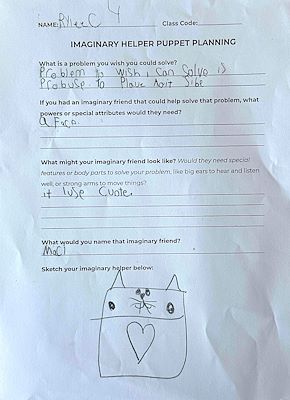 4
NAME: Rylee C Class Code:
IMAGINARY HELPER PUPPET PLANNING
What is a problem you wish you could solve?
Problem I wish I can Solve is
Probuse to Place
If you had an imaginary friend that could help solve that problem, what
powers or special attributes would they need?
a Face.
What might your imaginary friend look like? Would they need special
features or body parts to solve your problem, like big ears to hear and listen
well, or strong arms to move things?
it Cuote.
What would you name that imaginary friend?
Sketch your imaginary helper below: